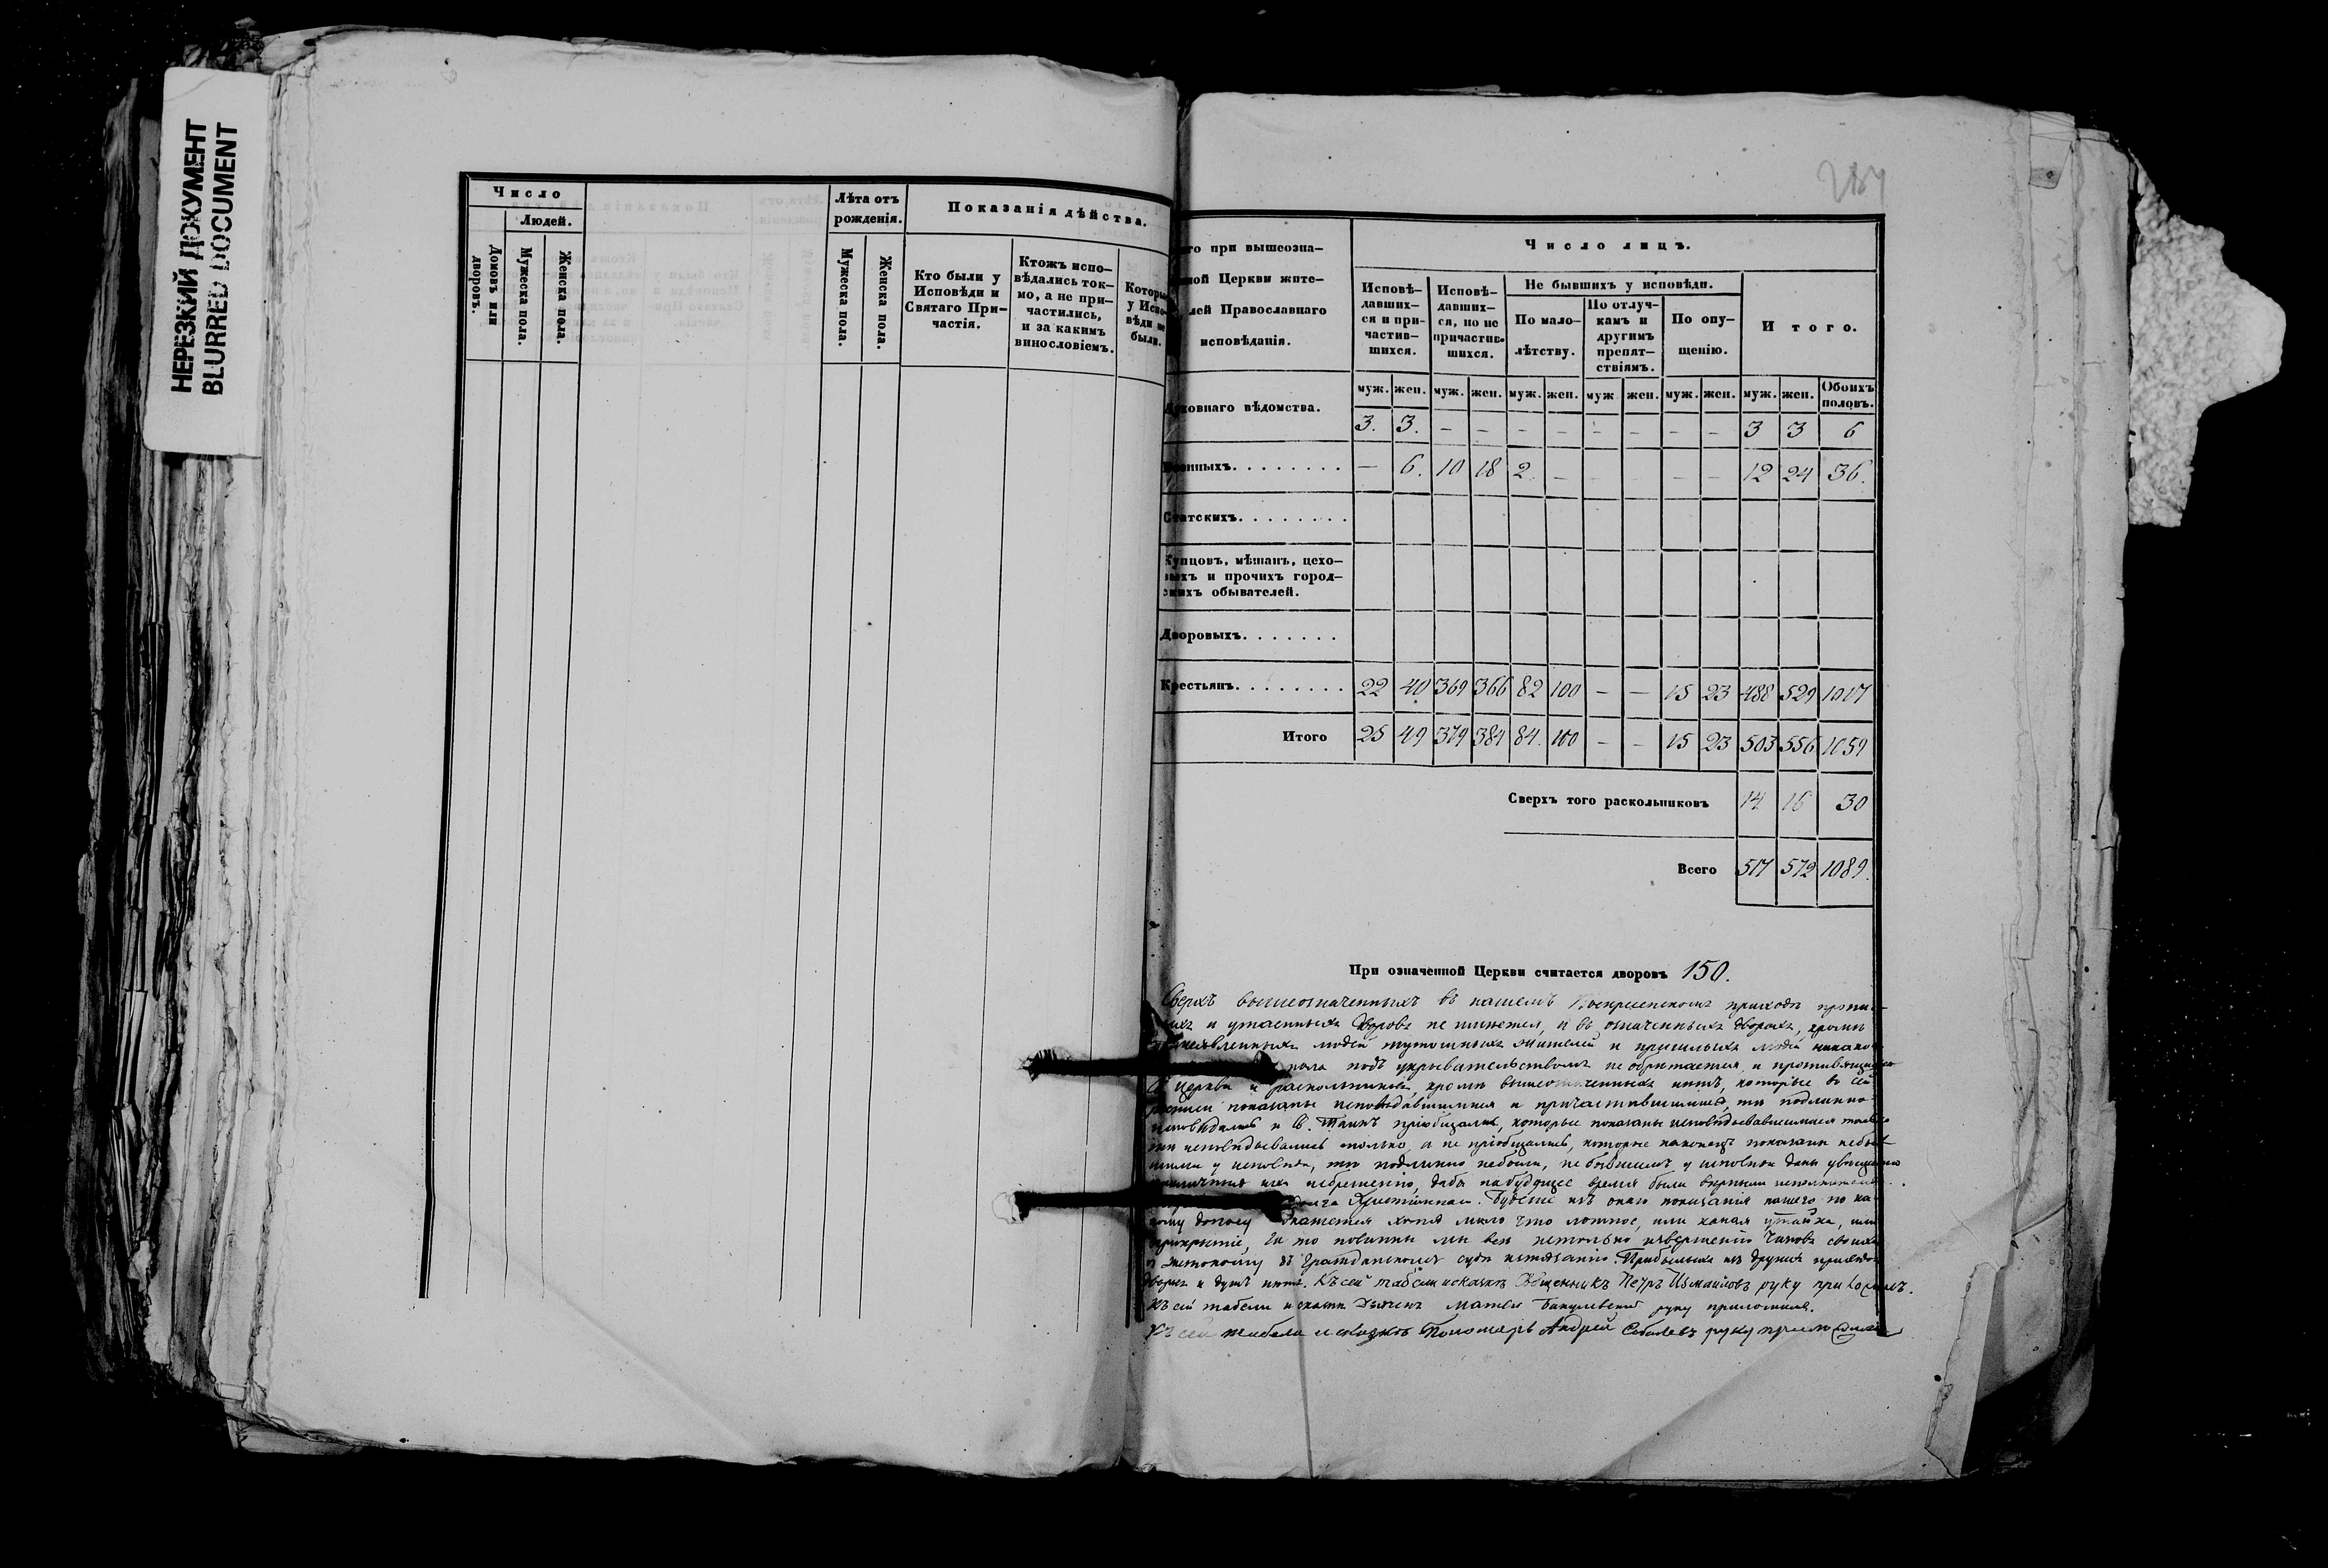 НЕРЕЗКИЙ ДОКУМЕНТ
BLURRED DOCUMENT
Число
Людей.
Домовъ или дворовъ.
Мужеска пола.
Женска пола.
Лѣта отъ рожденія.
Мужеска пола.
Женска пола.
Показанія дѣйства.
Кто были у
Исповѣди и
Святаго При-
частія.
Ктожъ испо-
вѣдались ток-
мо, а не при-
частились,
и за какимъ
винословіемъ.
Которы
у Испо-
вѣди не
были.
го при вышеозна-
ной Церкви жите-
лей Православнаго
исповѣданія.
Число лицъ.
Исповѣ-
давших-
ся и при-
частив-
шихся.
Исповѣ-
давших-
ся, но не
причастив-
шихся.
Не бывшихъ у исповѣди.
По мало-
лѣтству.
По отлуч-
камъ и
другимъ
препят-
ствіямъ.
По опу-
щенію.
Итого.
муж. жен. муж. жен. муж. жен. муж жен. муж. жен. муж. жен. Обоихъ половъ.
Духовнаго вѣдомства. 3. 3. – – – – – – – – 3 3 6
Военныхъ. — 6. 10 18 2. – – – – – 12 24 36.
Статскихъ.
Купцовъ, мѣщанъ, цехо-
выхъ и прочихъ город-
скихъ обывателей.
Дворовыхъ.
Крестьянъ. 22 40 369 366 82 100 – — 15 23 488 529 1017
Итого 25 49 379 384 84. 100 – – 15 23 503 556 1059
Сверхъ того раскольниковъ 14 16 30
Всего 517 572 1089.
При означенной Церкви считается дворовъ 150.
Сверхъ вышеозначенныхъ въ нашемъ Воскресенскомъ приходѣ
и утаенныхъ дворовъ не имѣется, и въ означенныхъ дворахъ, кромѣ
людей тутошныхъ жителей и пришлыхъ людей
пола подъ укрывательствомъ не обрѣтается, и
Церкви и раскольниковъ, кромѣ вышеозначенныхъ нѣтъ, которые въ сей
показаны исповѣдавшимися и причастившимися, тѣ подлинно
исповѣдались и Св. Таинъ пріобщались, которые показаны исповѣдывавшимися
тѣ исповѣдывались только, а не пріобщались, которые наконецъ показаны небыв-
шими у исповѣди, тѣ подлинно небыли, не бывшимъ у исповѣди даны
ихъ небреженію, дабы на будущее время были вѣрными
долга Христіанскаго. Будеже изъ онаго показанія нашего по ка-
кому доносу окажется хотя мало что ложное, или какая утайка, или
прикрытіе, за то повинны мы все нетолько изверженію чиновъ своихъ
и жестокому въ Гражданскомъ судѣ истязанію. Прибылыхъ изъ другихъ приходовъ
дворовъ и душъ нѣтъ. Къ сей табели и сказкѣ Священникъ Петръ Измайловъ руку приложилъ.
Къ сей табели и сказкѣ Дьячекъ руку приложилъ.
Къ сей табели и сказкѣ Пономарь Андрей Соболевъ руку приложилъ